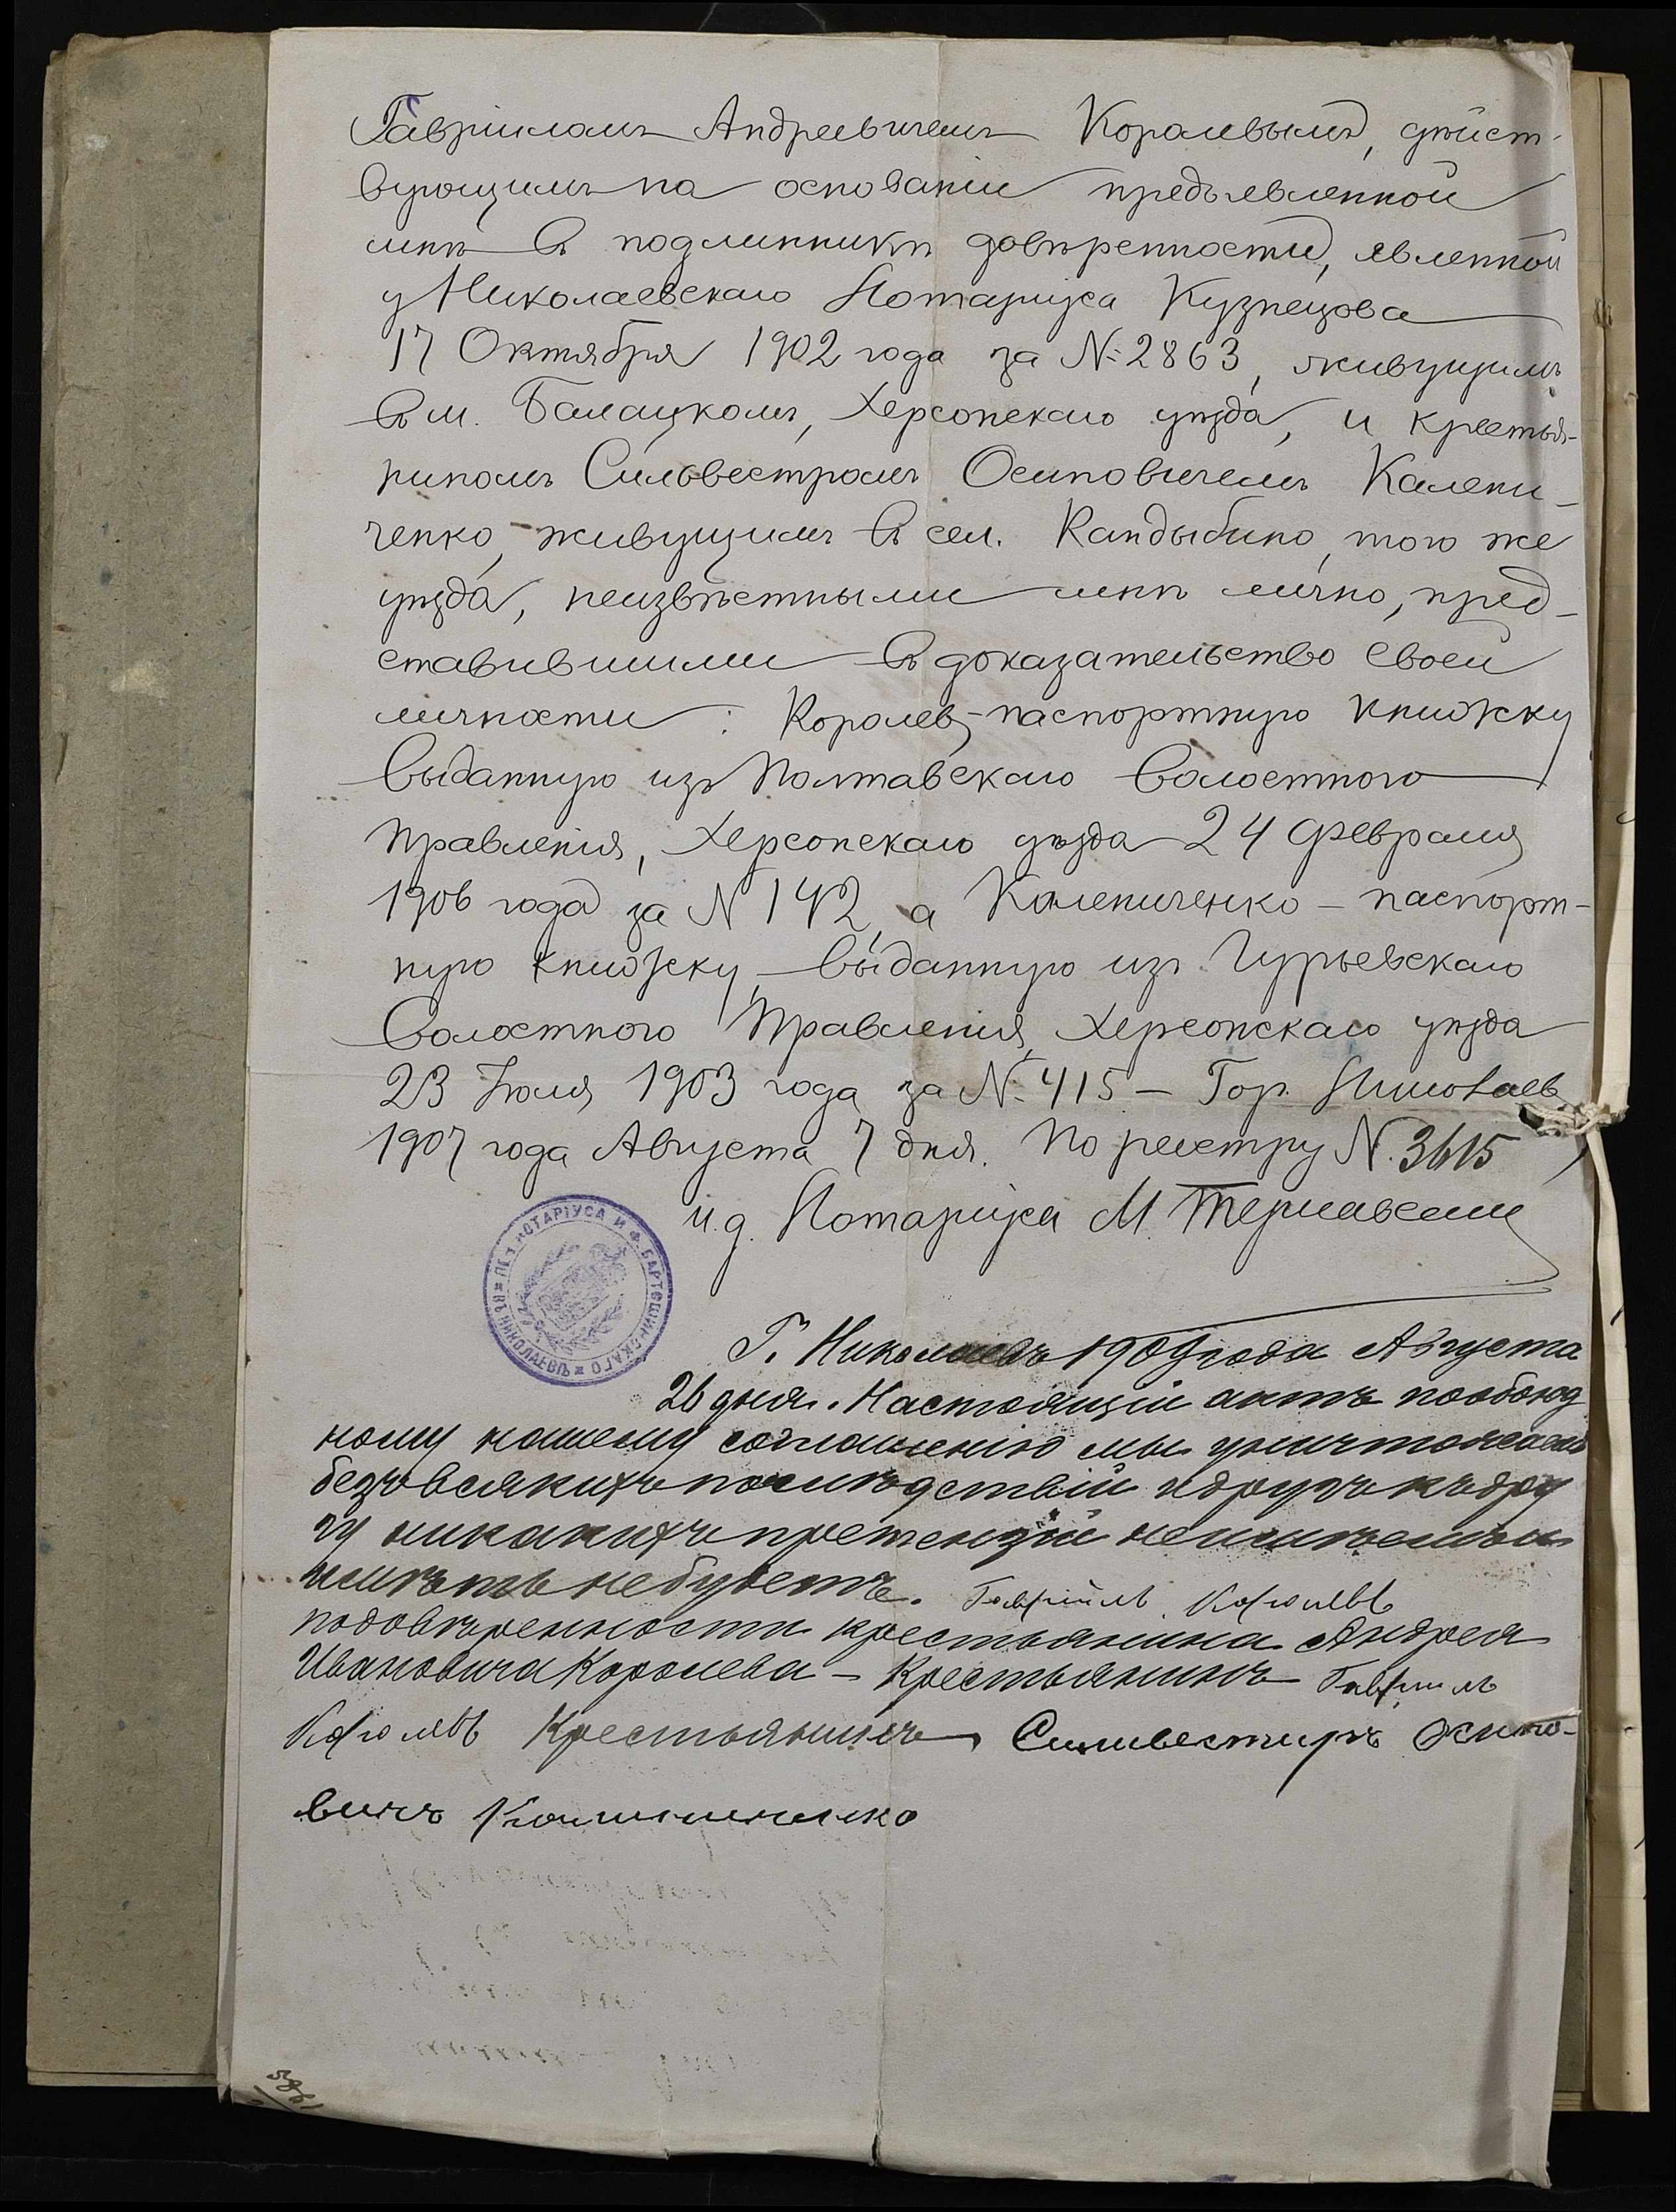 Гавріиломъ Андреевичемъ Королевымъ, дѣйст-
вующимъ на основаніи предъявленной
мнѣ въ подлинникѣ довѣренности, явленной
у Николаевскаго Нотаріуса Кузнецова
17 Октября 1902 года за № 2863, живущимъ
въ м. Балацкомъ, Херсонскаго уѣзда, и крестья-
ниномъ Сильвестромъ Осиповичемъ Калени-
ченко, живущимъ въ сел. Кандыбино, того же
уѣзда, неизвѣстными мнѣ лично, пред-
ставившими въ доказательство своей
личности: Королевъ-паспортную книжку
выданную изъ Полтавскаго Волостного
Правленія, Херсонскаго уѣзда 24 Февраля
1906 года за N 142, а Калениченко - паспорт-
ную книжку, выданную изъ Гурьевскаго
Волостного Правленія, Херсонскаго уѣзда
23 Іюля 1903 года за № 415 - Гор. Николаевъ
1907 года Августа 7 дня. По реестру N. 3615
И. д. Нотаріуса М.
НОТАРІУСА И. Ф. БАРТОШИНСКАГО ВЪ НИКОЛАЕВѢ
Г. Николаевъ 1909 года Августа
26 дня. Настоящій актъ по обоюд
ному нашему соглашенію мы уничтожаемъ
безъ всякихъ послѣдствій и другъ къ дру
гу никакихъ претензій не имѣемъ и
имѣть не будетъ. Гавріилъ Королевъ
по довѣренности крестьянина Андрея
Ивановича Королева - Крестьянинъ Гавріилъ
Королевъ Крестьянинъ Силивестиръ Осипо-
вичъ Калениченко